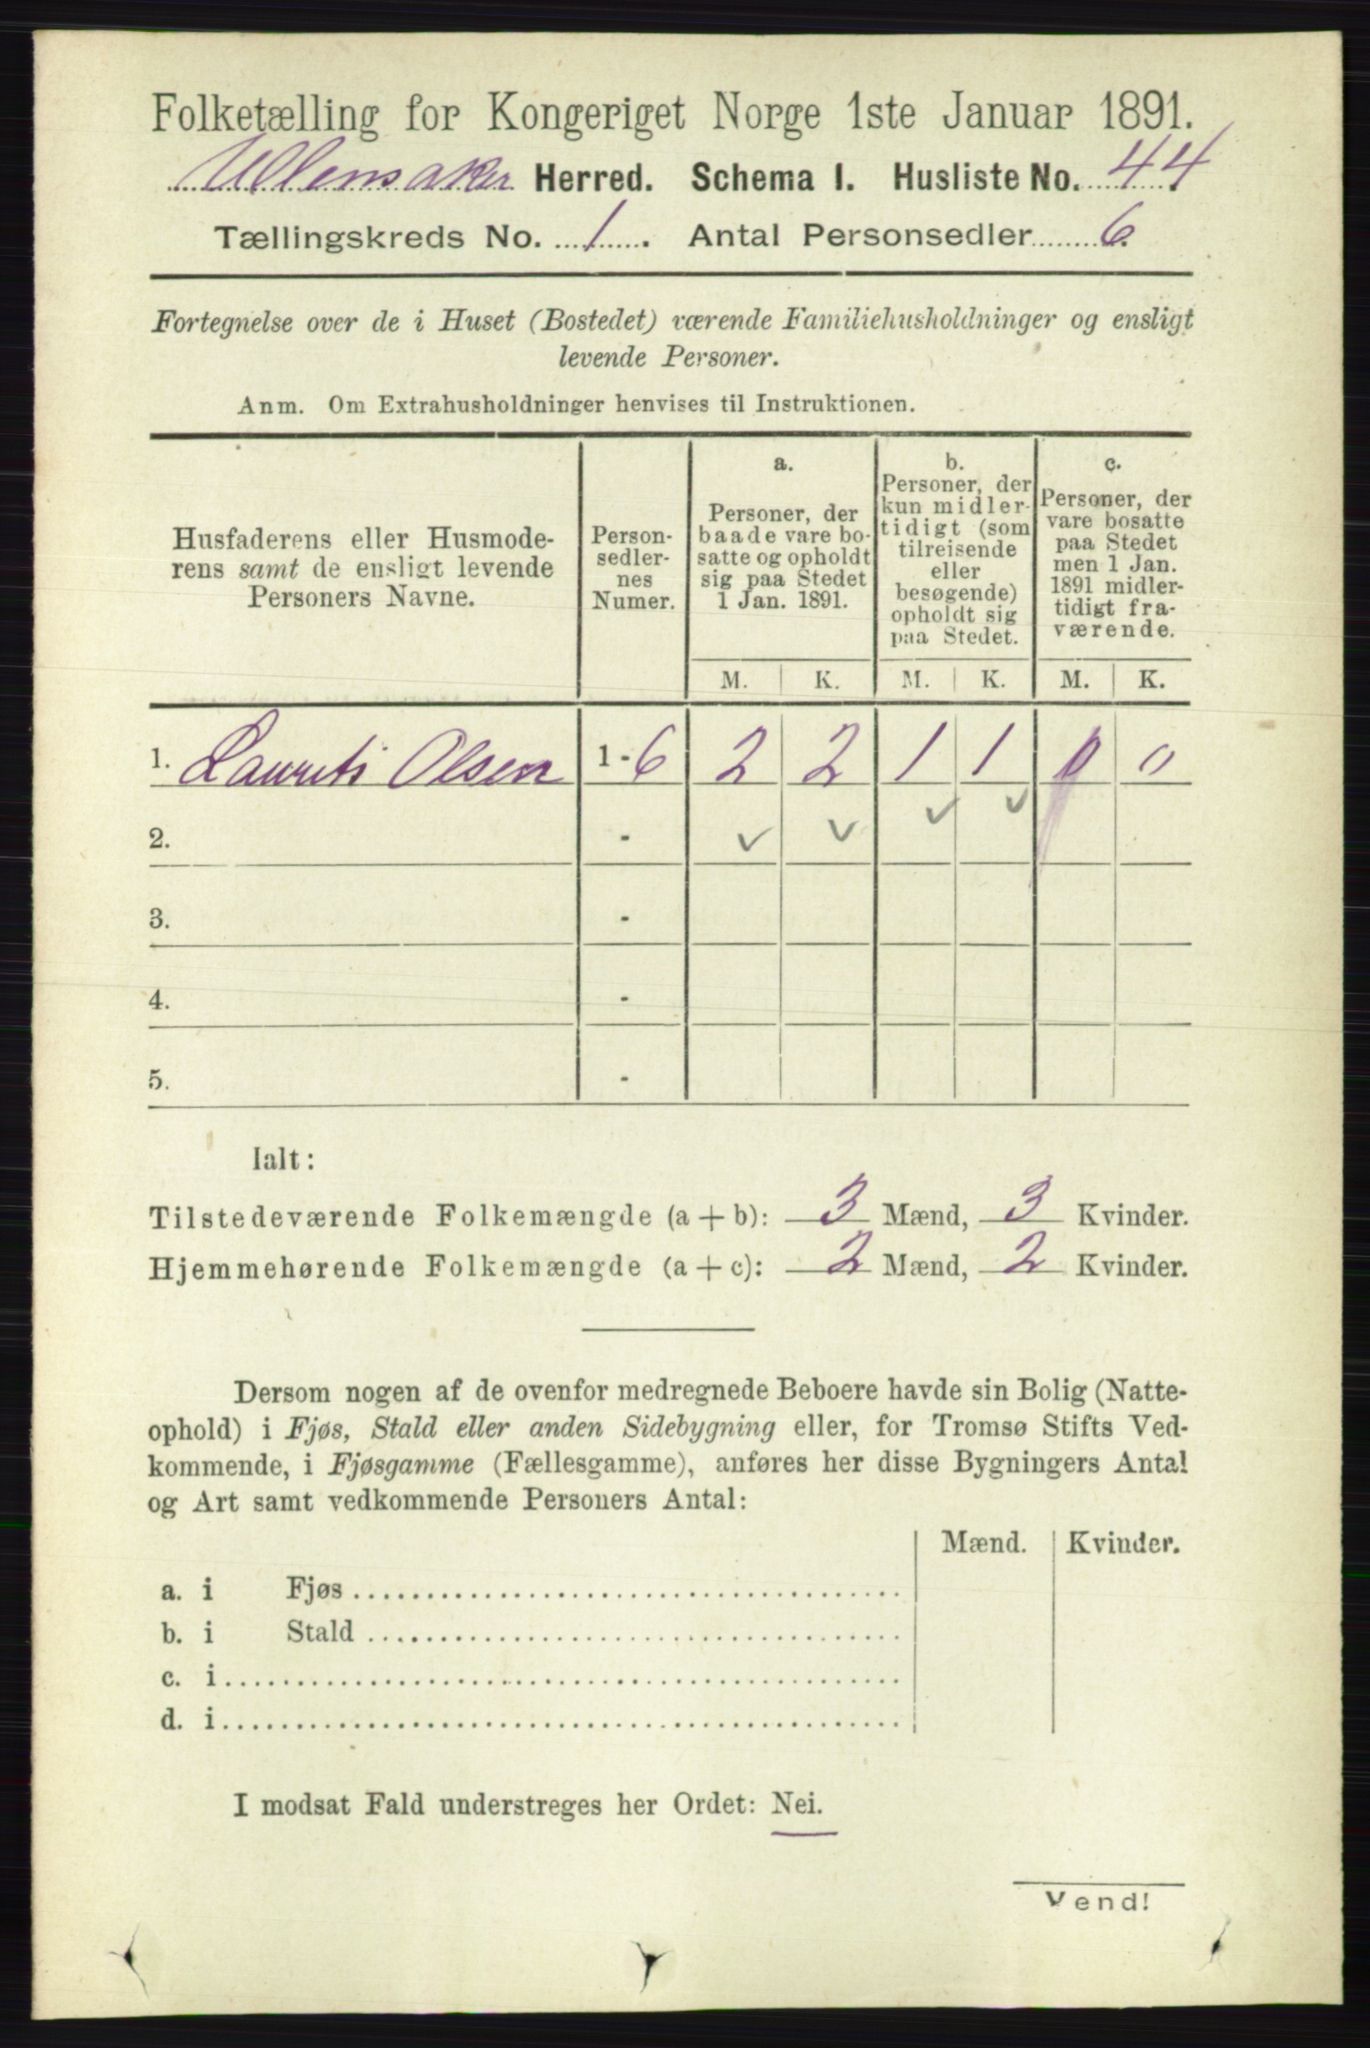 Folketælling for Kongeriget Norge 1ste Januar 1891.
Ullensaker Herred. Schema 1. Husliste No. 44
Tællingskreds No. 1. Antal Personsedler 6.
Fortegnelse over de i Huset (Bostedet) værende Familiehusholdninger og ensligt
levende Personer.
Anm. Om Extrahusholdninger henvises til Instruktionen.
Husfaderens eller Husmode-
rens samt de ensligt levende
Personers Navne.
Person-
sedler-
nes
Numer.
a.
Personer, der
baade vare bo-
satte og opholdt
sig paa Stedet
1 Jan. 1891.
b.
Personer, der
kun midler-
tidigt (som
tilreisende
eller
besøgende)
opholdt sig
paa Stedet.
c.
Personer, der
vare bosatte
paa Stedet
men 1 Jan.
1891 midler-
tidigt fra-
værende.
M. K. M. K. M. K.
1. Laurits Olsen 1 - 6 2 2 1 1 0 0
2. -
3. -
4. -
5. -
Ialt:
Tilstedeværende Folkemængde (a + b): 3 Mænd, 3 Kvinder.
Hjemmehørende Folkemængde (a + c): 2 Mænd, 2 Kvinder.
Dersom nogen af de ovenfor medregnede Beboere havde sin Bolig (Natte-
ophold) i Fjøs, Stald eller anden Sidebygning eller, for Tromsø Stifts Ved-
kommende, i Fjøsgamme (Fællesgamme), anføres her disse Bygningers Antal
og Art samt vedkommende Personers Antal:
Mænd. Kvinder.
a. i Fjøs
b. i Stald
c. i
d. i
I modsat Fald understreges her Ordet: Nei.
Vend!